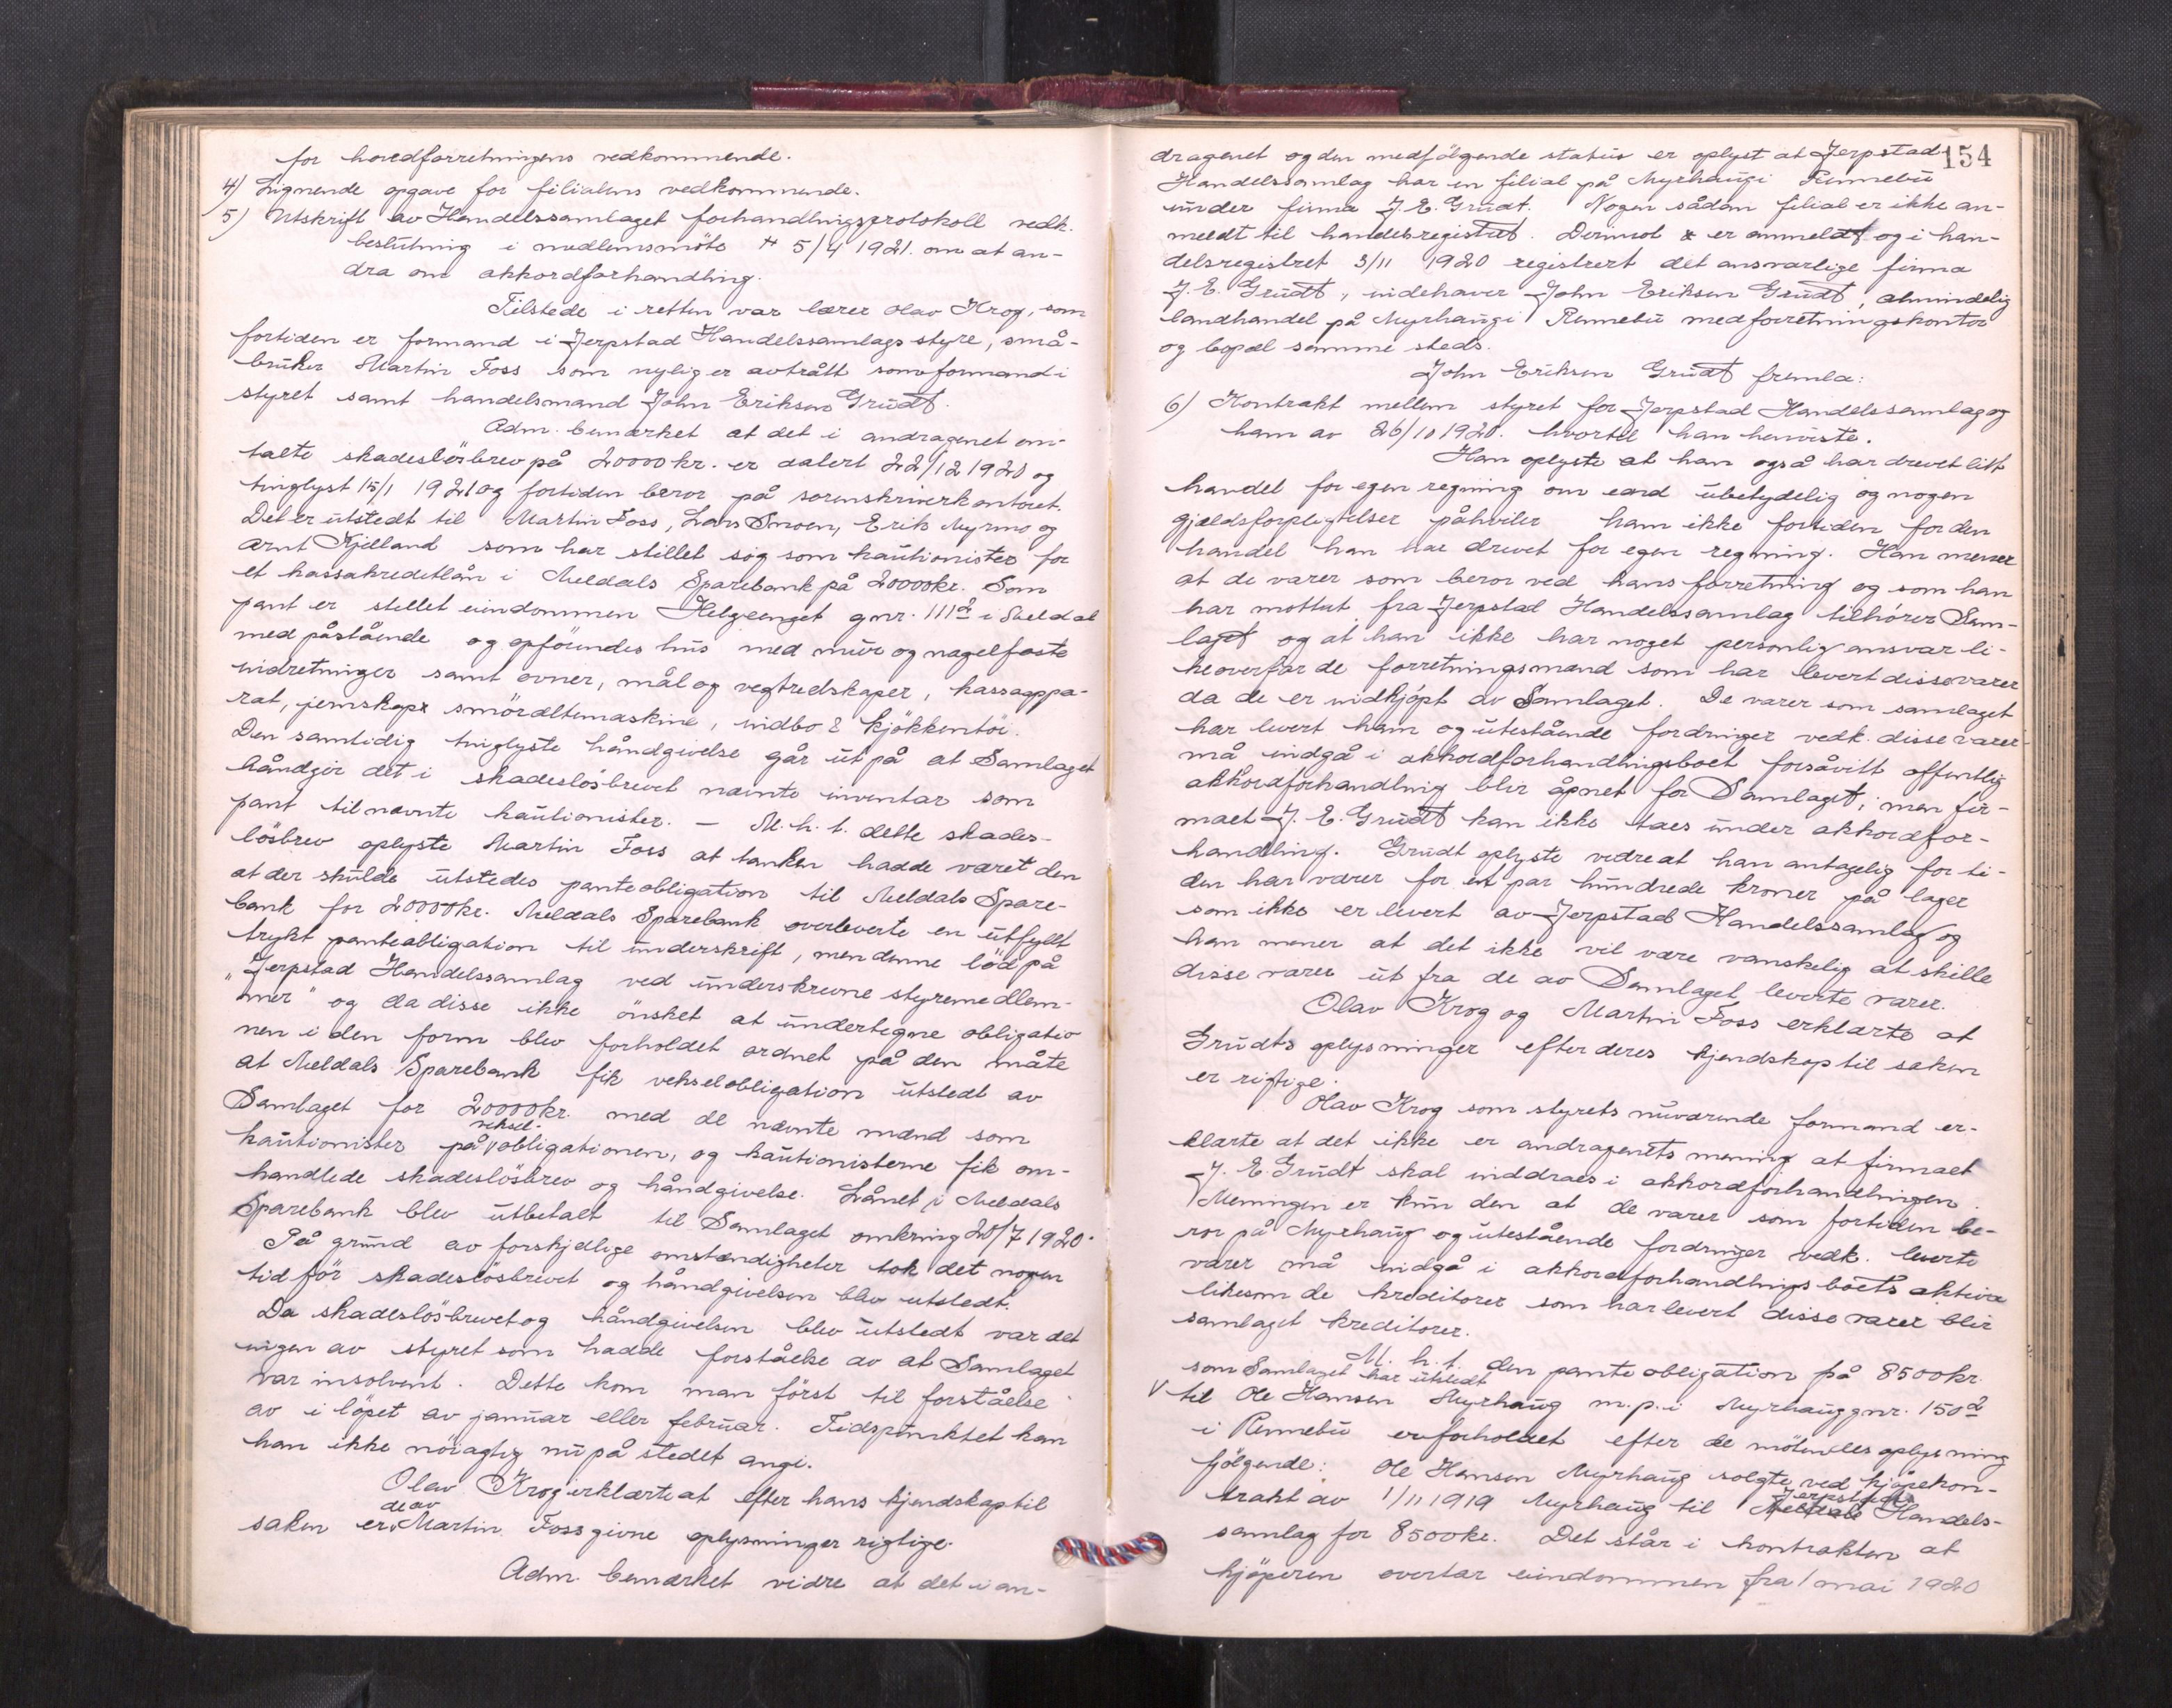 for hovedforretningens vedkommende.
4) Lignende opgave for filialens vedkommende.
5) Utskrift av Handelssamlaget forhandlingsprotokoll vedk.
beslutning i medlemsmöte 5/4 1921. om at an-
dra om akkordforhandling.
Tilstede i retten var lærer Olav Krog, som
fortiden er formand i Jerpstad Handelssamlags styre, små-
bruker Martin Foss som nylig er avtrådt som formand i
styret samt handelsmand John Eriksen Grudt.
Adm. bemerket at det i andragenet om-
talte skadeslösbrev på 20000 kr. er datert 22/12 1920 og
tinglyst 15/1 1921 og fortiden beror på sorenskriverkontoret.
Det er utstedt til Martin Foss, Lars Smoen, Erik Myrmo og
Arnt Kjelland som har stillet sig som kautionister for
et kassakreditlån i Meldals Sparebank på 20000 kr. Som
pant er stillet eiendommen Helgeenget gnr. 111 2 i Meldal
med påstående og opföiendes hus med mur og nagelfaste
indretninger samt ovner, mål og vegtredskaper, kassaappa-
rat, jernskap smöræltemaskine, indbo & kjökkentöi.
Den samtidig tinglyste håndgivelse går ut på at Samlaget
håndgir det i skadeslösbrevet nævnte inventar som
pant til nævnte kautionister. – M.h.t. dette skades-
lösbrev oplyste Martin Foss at tanken hadde været den
at der skulde utstedes panteobligation til Meldals Spare-
bank for 20000 kr. Meldals Sparebank overleverte en utfyllt
trykt panteobligation til underskrift, men denne löd på
"Jerpstad Handelssamlag ved underskrevne styremedlem-
mer" og da disse ikke önsket at undertegne obligatio
nen i den form blev forholdet ordnet på den måte
at Meldals Sparebank fik vekselobligation utstedt av
Samlaget for 20000 kr. med de nævnte mænd som
veksel-
kautionister på obligationen, og kautionisterne fik om-
handlede skadeslösbrev og håndgivelse. Lånet i Meldals
Sparebank blev utbetalt til Samlaget omkring 20/7 1920.
På grund av forskjellige omstændigheter tok det nogen
tid för skadeslösbrevet og håndgivelsen blev utstedt.
Da skadeslösbrevet og håndgivelsen blev utstedt var det
ingen av styret som hadde forståelse av at Samlaget
var insolvent. Dette kom man först til forståelse
av i löpet av januar eller februar. Tidspunktet kan
han ikke nöiagtig nu på stedet angi.
Olav Krog erklærte at efter hans kjendskap til
de av
saken er Martin Foss givne oplysninger rigtige.
Adm. bemerket vidre at det i an-
154
dragenet og den medfölgende status er oplyst at Jerpstad
Handelssamlag har en filial på Myrhaug i Rennebu
under firma J. E. Grudt. Nogen sådan filial er ikke an-
meldt til handelsregistret. Derimot er anmeldt og i han-
delsregistret 3/11 1920 registrert det ansvarlige firma
J. E. Grudt, indehaver John Eriksen Grudt, almindelig
landhandel på Myrhaug i Rennebu med forretningskontor
og bopæl samme steds.
John Eriksen Grudt fremla:
6) Kontrakt mellem styret for Jerpstad Handelssamlag og
ham av 26/10 1920. hvortil han henviste.
Han oplyste at han også har drevet litt
handel for egen regning om end ubetydelig og nogen
gjældsforpligtelser påhviler ham ikke fortiden for den
handel han har drevet for egen regning. Han mener
at de varer som beror ved hans forretning og som han
har mottat fra Jerpstad Handelssamlag tilhörer Sam-
laget og at han ikke har noget personlig ansvar li-
keoverfor de forretningsmænd som har levert disse varer
da de er indkjöpt av Samlaget. De varer som samlaget
har levert ham og utestående fordringer vedk. disse varer
må indgå i akkordforhandlingsboet forsåvitt offentlig
akkordforhandling blir åpnet for Samlaget; men fir-
maet J. E. Grudt kan ikke taes under akkordfor-
handling. Grudt oplyste vidre at han antagelig for ti-
den har varer for et par hundrede kroner på lager
som ikke er levert av Jerpstad Handelssamlag og
han mener at det ikke vil være vanskelig at skille
disse varer ut fra de av Samlaget leverte varer.
Olav Krog og Martin Foss erklærte at
Grudts oplysninger efter deres kjendskap til saken
er rigtige.
Olav Krog som styrets nuværende formand er-
klærte at det ikke er andragenets mening at firmaet
J. E. Grudt skal inddraes i akkordforhandlingen.
Meningen er kun den at de varer som fortiden be-
ror på Myrhaug og utestående fordringer vedk. leverte
varer må indgå i akkordforhandlingsboets aktiva
likesom de kreditorer som har levert disse varer blir
samlaget kreditorer.
M. h. t. den panteobligation på 8500 kr.
som Samlaget har utstedt
til Ole Hansen Myrhaug m.p. i Myrhaug gnr. 150 2
i Rennebu er forholdet efter de mötendes oplysning
fölgende: Ole Hansen Myrhaug solgte ved kjöpekon-
Jerpstad
trakt av 1/11 1919 Myrhaug til Meldals Handels-
samlag for 8500 kr. Det står i kontrakten at
kjöperen overtar eiendommen fra 1 mai 1920